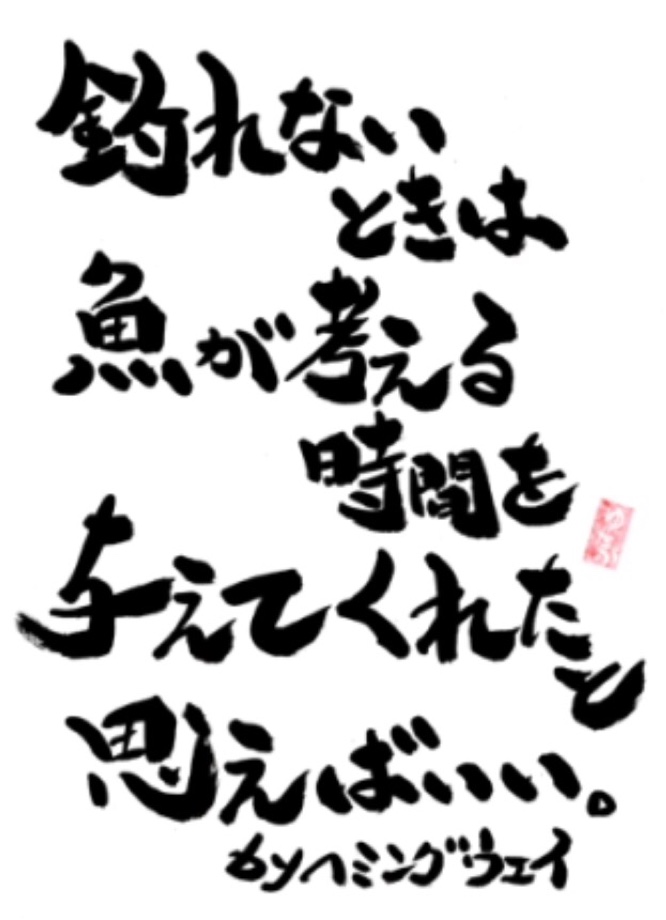 釣れない
ときは
魚が考える
時間を
与えてくれたと
思えばいい。
byヘミングウェイ